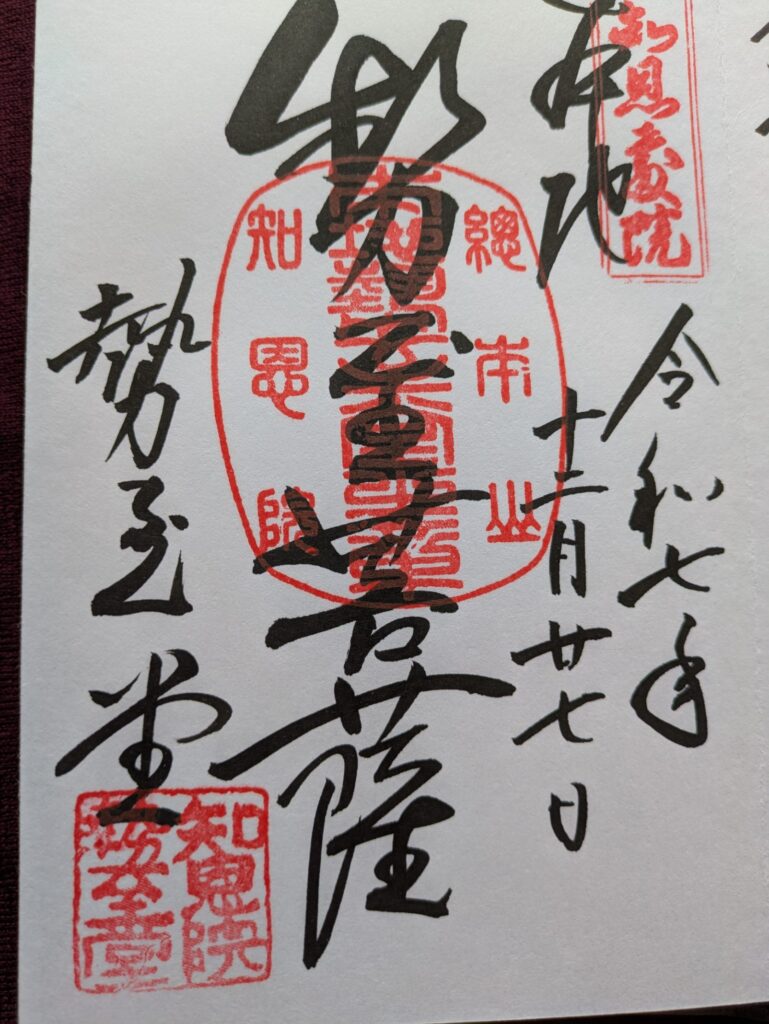 本地
知恩教院
令和七年
十二月廿七日
總本山
勢至菩薩
知恩院
勢至堂
知恩院
勢至堂